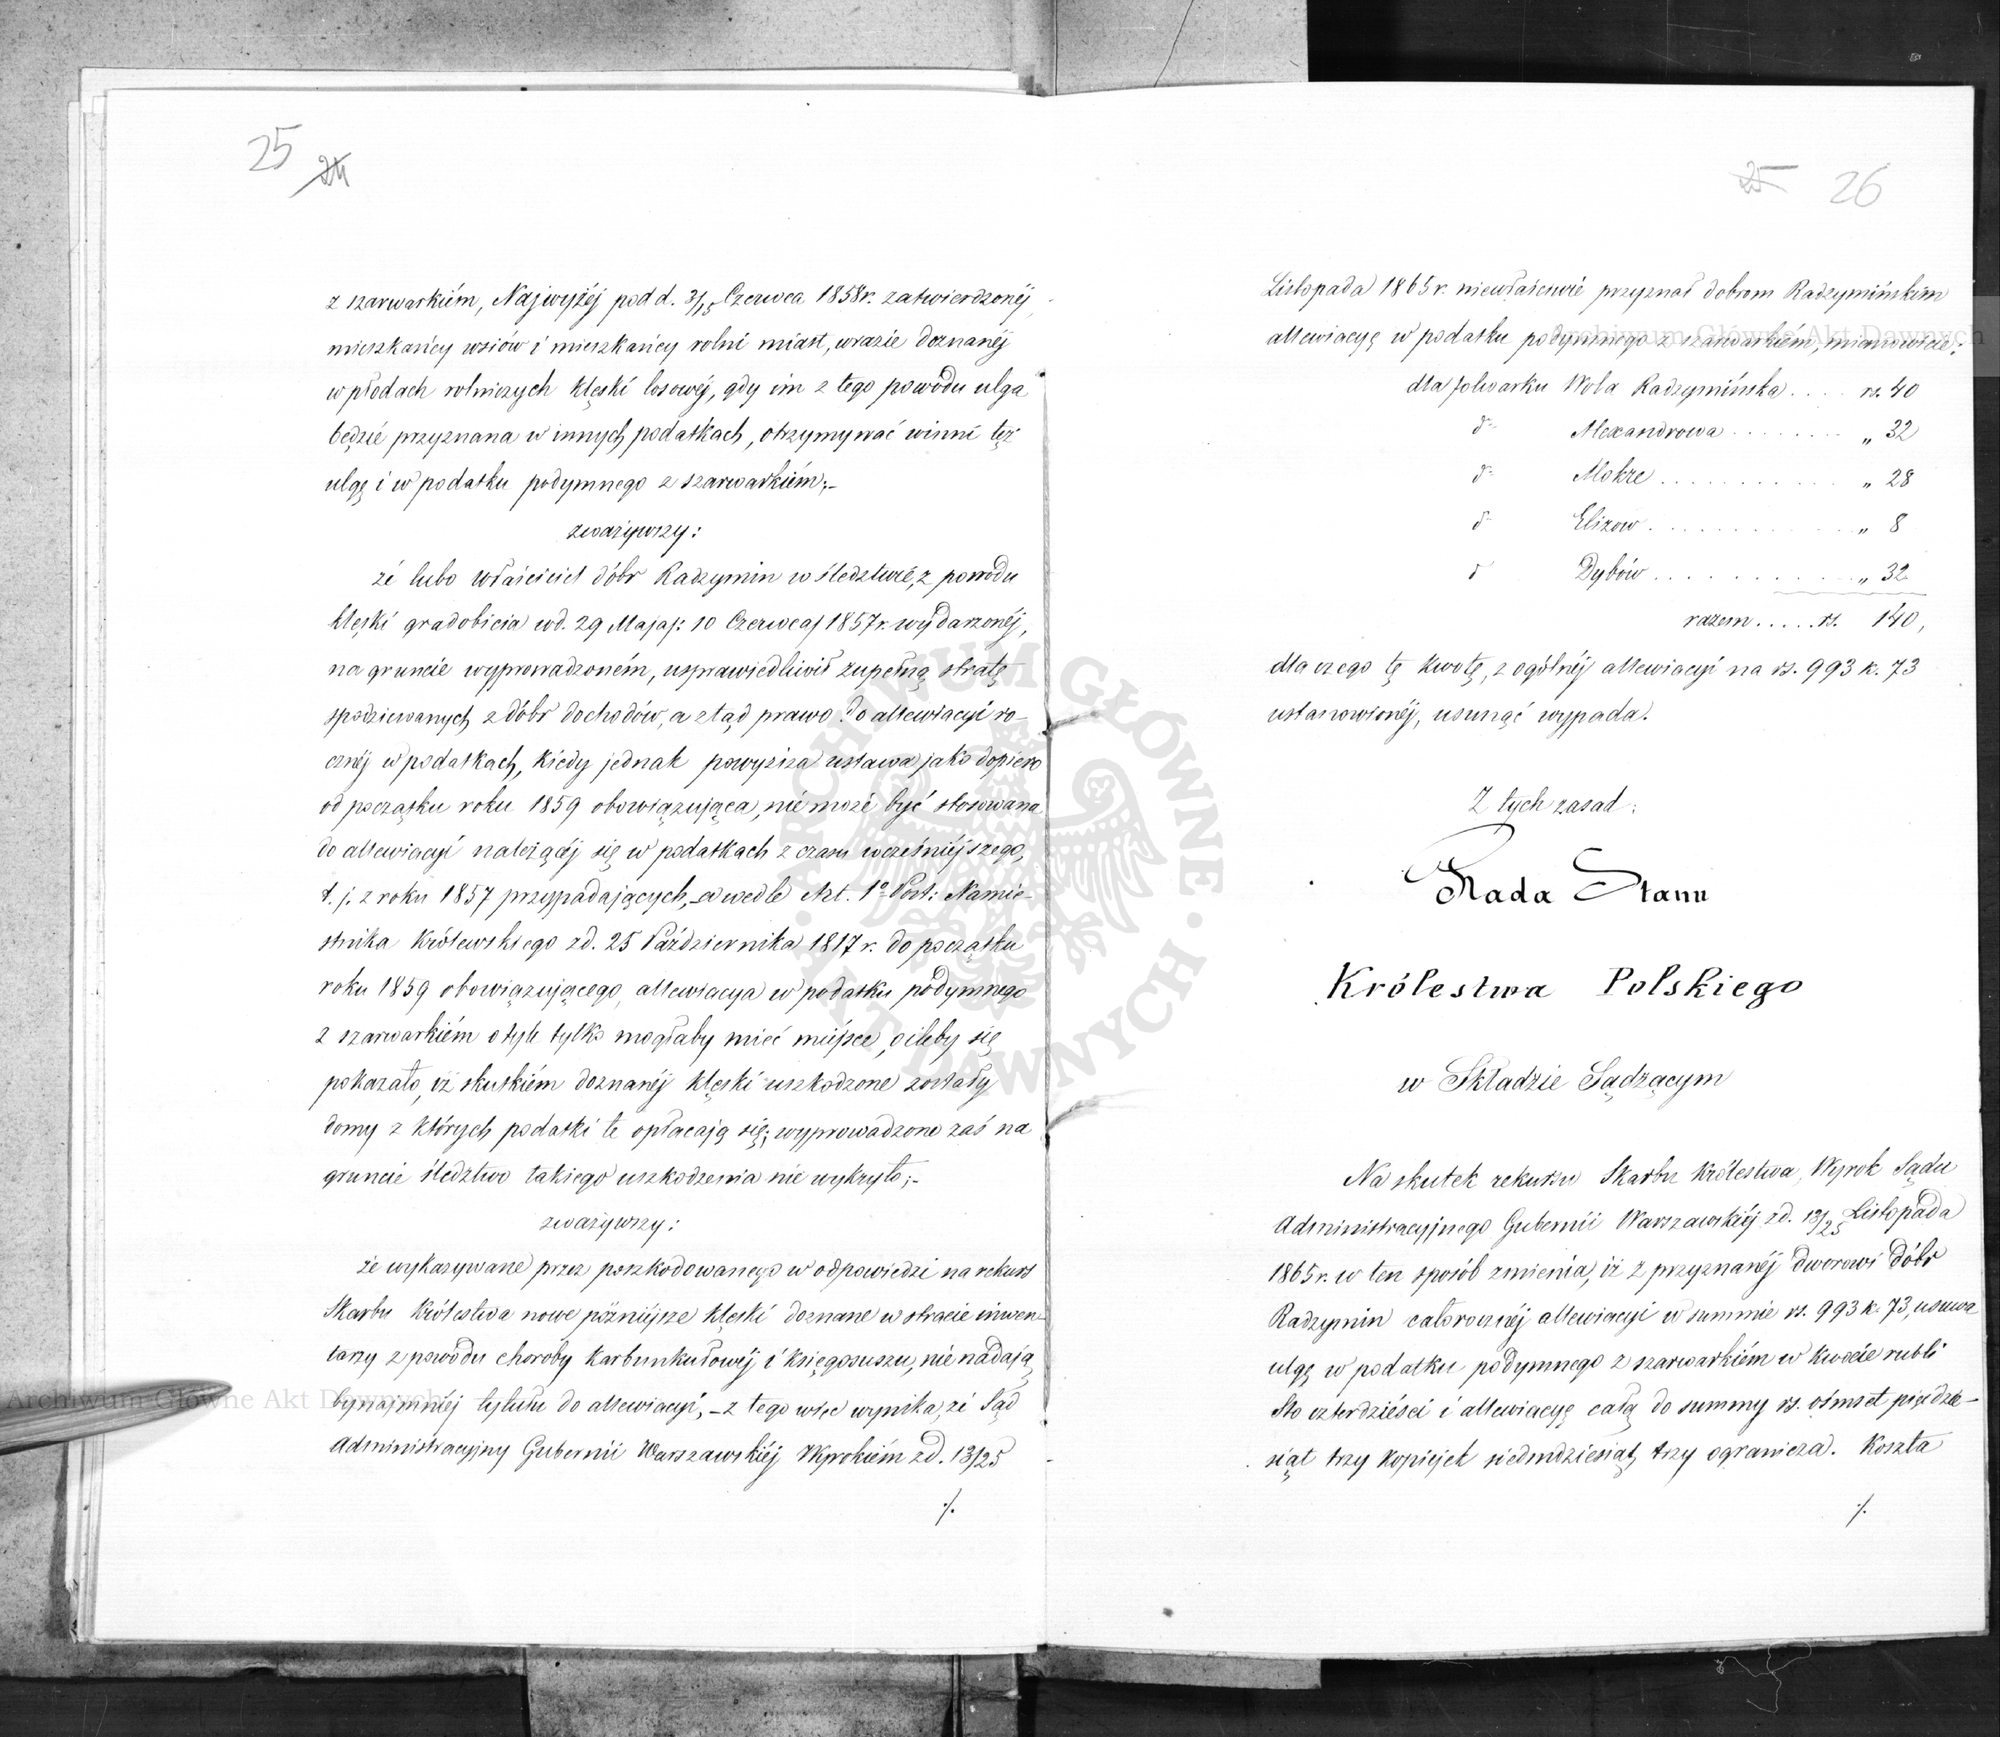 25 24
z szarwarkiém, Najwyżéj pod d. 3/15 Czerwca 1858r. zatwierdzonéj,
mieszkańcy wsiów i mieszkańcy rolni miast, wrazie doznanéj
w płodach rolniczych klęski losowéj, gdy im z tego powodu ulga
będzie przyznana w innych podatkach, otrzymywać winni też
ulgę i w podatku podymnego z szarwarkiém;-
zważywszy:
że lubo właściciel dóbr Radzymin w śledztwie, z powodu
klęski gradobicia w d. 29 Maja/: 10 Czerwca/ 1857 r. wydarzonéj,
na gruncie wyprowadzoném, usprawiedliwił zupełną stratę
spodziewanych z dóbr dochodów, a ztąd prawo do allewiacyi ro-
cznéj w podatkach, kiedy jednak powyższa ustawa jako dopiero
od początku roku 1859 obowiązująca, nie może być stosowana
do allewiacyi należącéj się w podatkach z czasu wcześniéjszego,
t. j. z roku 1857 przypadających, - a wedle Art. 1º Post: Namie-
stnika Królewskiego z d. 25 Października 1817 r. do początku
roku 1859 obowiązującego, allewiacya w podatku podymnego
z szarwarkiém o tyle tylko mogłaby mieć miéjsce, o ileby się
pokazało, iż skutkiém doznanéj klęski uszkodzone zostały
domy z których podatki te opłacają się; wyprowadzone zaś na
gruncie śledztwo takiego uszkodzenia nie wykryło;-
zważywszy:
że wykazywane przez poszkodowanego w odpowiedzi na rekurs
Skarbu Królestwa nowe późniéjsze klęski doznane w stracie inwen-
tarzy z powodu choroby karbunkułowéj i księgosuszu, nie nadają
bynajmniéj tytułu do allewiacyi, - z tego więc wynika, że Sąd
Administracyjny Gubernii Warszawskiéj Wyrokiém z d. 13/25
./.
25 26
Listopada 1865 r. niewłaściwie przyznał dobrom Radzymińskim
allewiacyę w podatku podymnego z szarwarkiém, mianowicie:
dla folwarku Wola Radzymińska . . . . rs. 40
dº Alexandrowa . . . . . . . . „ 32
dº Mokre . . . . . . . . . . . . „ 28
dº Elizow . . . . . . . . . . . . „ 8
dº Dybów . . . . . . . . . . . . „ 32
razem . . . . . rs. 140,
dla czego tę kwotę, z ogólnéj allewiacyi na rs. 993 k. 73
ustanowionéj, usunąć wypada.
Z tych zasad:
Rada Stanu
Królestwa Polskiego
w Składzie Sądzącym
Na skutek rekursu Skarbu Królestwa, Wyrok Sądu
Administracyjnego Gubernii Warszawskiéj z d. 13/25 Listopada
1865 r. w ten sposób zmienia, iż z przyznanéj dworowi dóbr
Radzymin całorocznéj allewiacyi w summie rs. 993 k. 73, usuwa
ulgę w podatku podymnego z szarwarkiém w kwocie rubli
sto czterdzieści i allewiacyę całą do summy rs. ośmset pięćdzie-
siąt trzy kopiejek siedmdziesiąt trzy ogranicza. Koszta
./.
Archiwum Główne Akt Dawnych
Archiwum Główne Akt Dawnych
ARCHIWUM GŁÓWNE AKT DAWNYCH